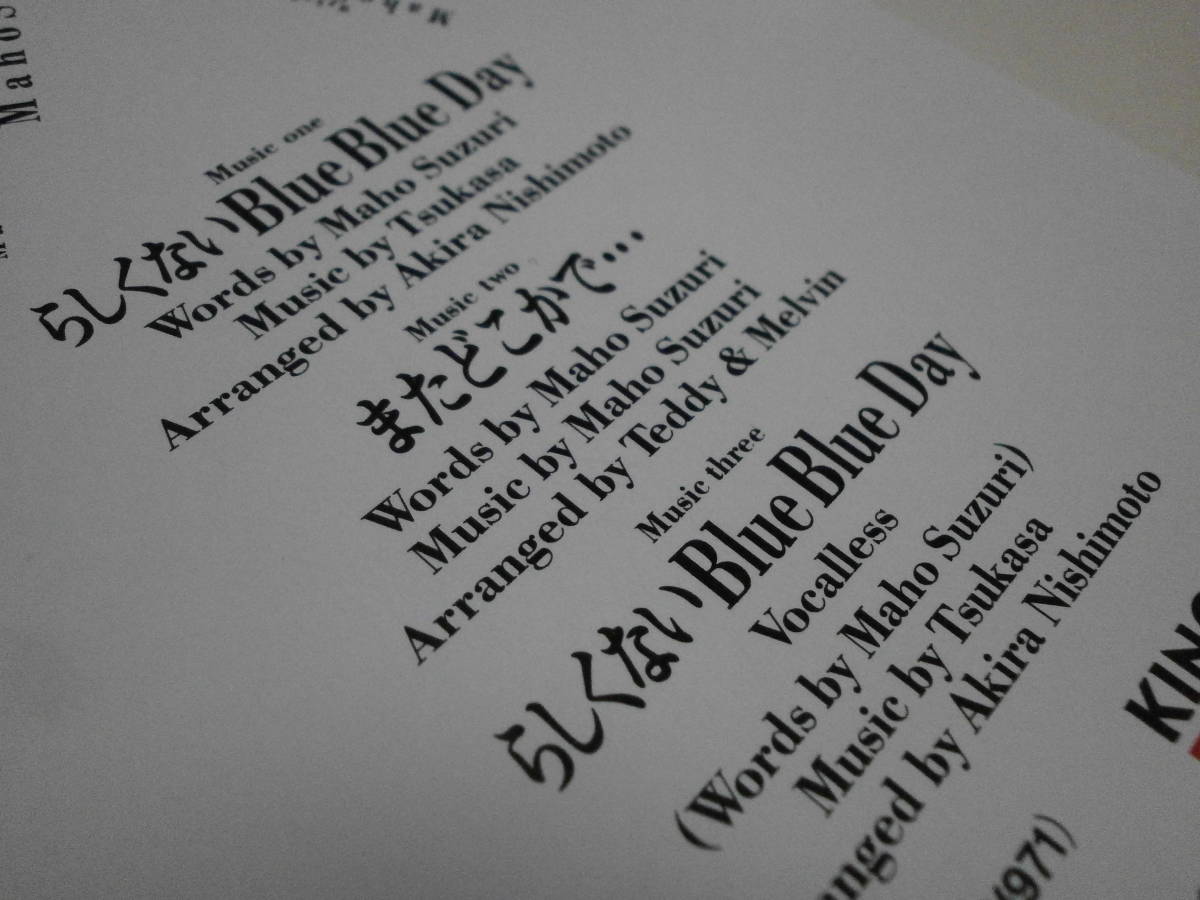 Maho
Music one
らしくないBlue Blue Day
Words by Maho Suzuri
Music by Tsukasa
Arranged by Akira Nishimoto
Music two
またどこかで…
Words by Maho Suzuri
Music by Maho Suzuri
Arranged by Teddy & Melvin
Music three
らしくないBlue Blue Day
Vocalless
(Words by Maho Suzuri)
Music by Tsukasa
anged by Akira Nishimoto
KING
971)